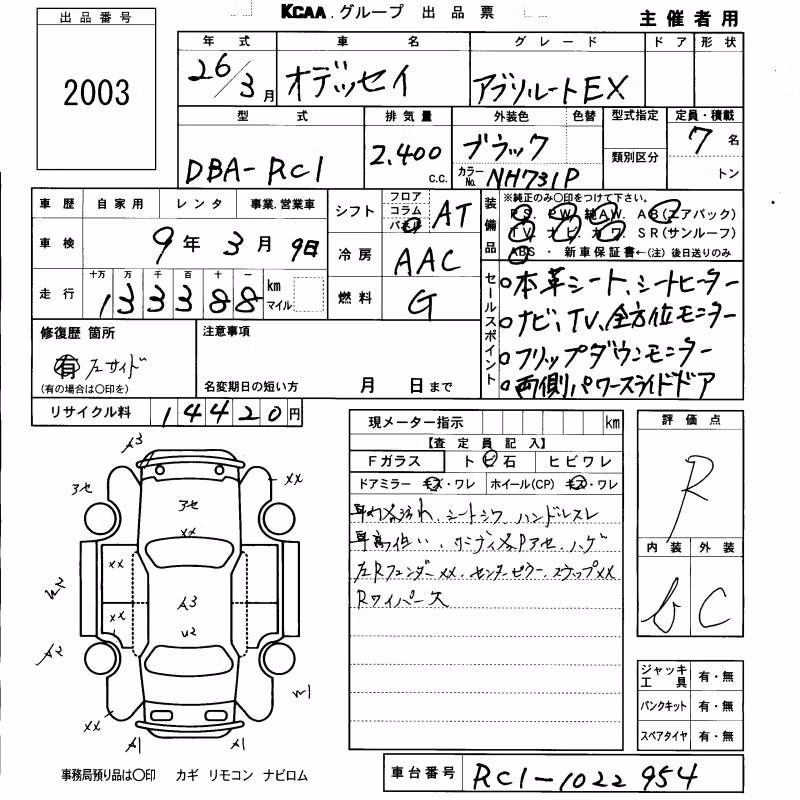 KCAA.グループ 出品票
主催者用
出品番号
2003
年式 車名 グレード ドア 形状
26/3月 オデッセイ アブソルートEX
型式 排気量 外装色 色替 型式指定 定員・積載
DBA-RC1 2,400 c.c. ブラック 類別区分 7名
カラーNo. NH731P トン
車歴 自家用 レンタ 事業.営業車
シフト フロア コラム パネル AT
車検 9年3月9日
冷房 AAC
走行 十万 万 千 百 十 一
133388 km マイル
燃料 G
装備品 ※純正のみ○印をつけて下さい。
P.S. P.W. 純AW. AB(エアバック)
TV. ナビ カワ. SR(サンルーフ)
ABS ・ 新車保証書←(注)後日送りのみ
セールスポイント
○本革シート、シートヒーター
○ナビ、TV、全方位モニター
○フリップダウンモニター
○両側パワースライドドア
修復歴 箇所
有 左サイド
(有の場合は○印を)
注意事項
名変期日の短い方 月 日まで
リサイクル料 14420円
現メーター指示 km
【査定員記入】
Fガラス トビ石 ヒビワレ
ドアミラー キズ・ワレ ホイール(CP) キズ・ワレ
シートシワ ハンドルスレ
左Rフェンダーxx. センターピラー. ステップxx
Rワイパー欠
評価点
R
内装 外装
b C
ジャッキ工具 有・無
パンクキット 有・無
スペアタイヤ 有・無
A3
xx
アセ
アセ
xx
xx
xx
A3
U2
A2
xx
A1
A1
事務局預り品は○印 カギ リモコン ナビロム
車台番号 RC1-1022954